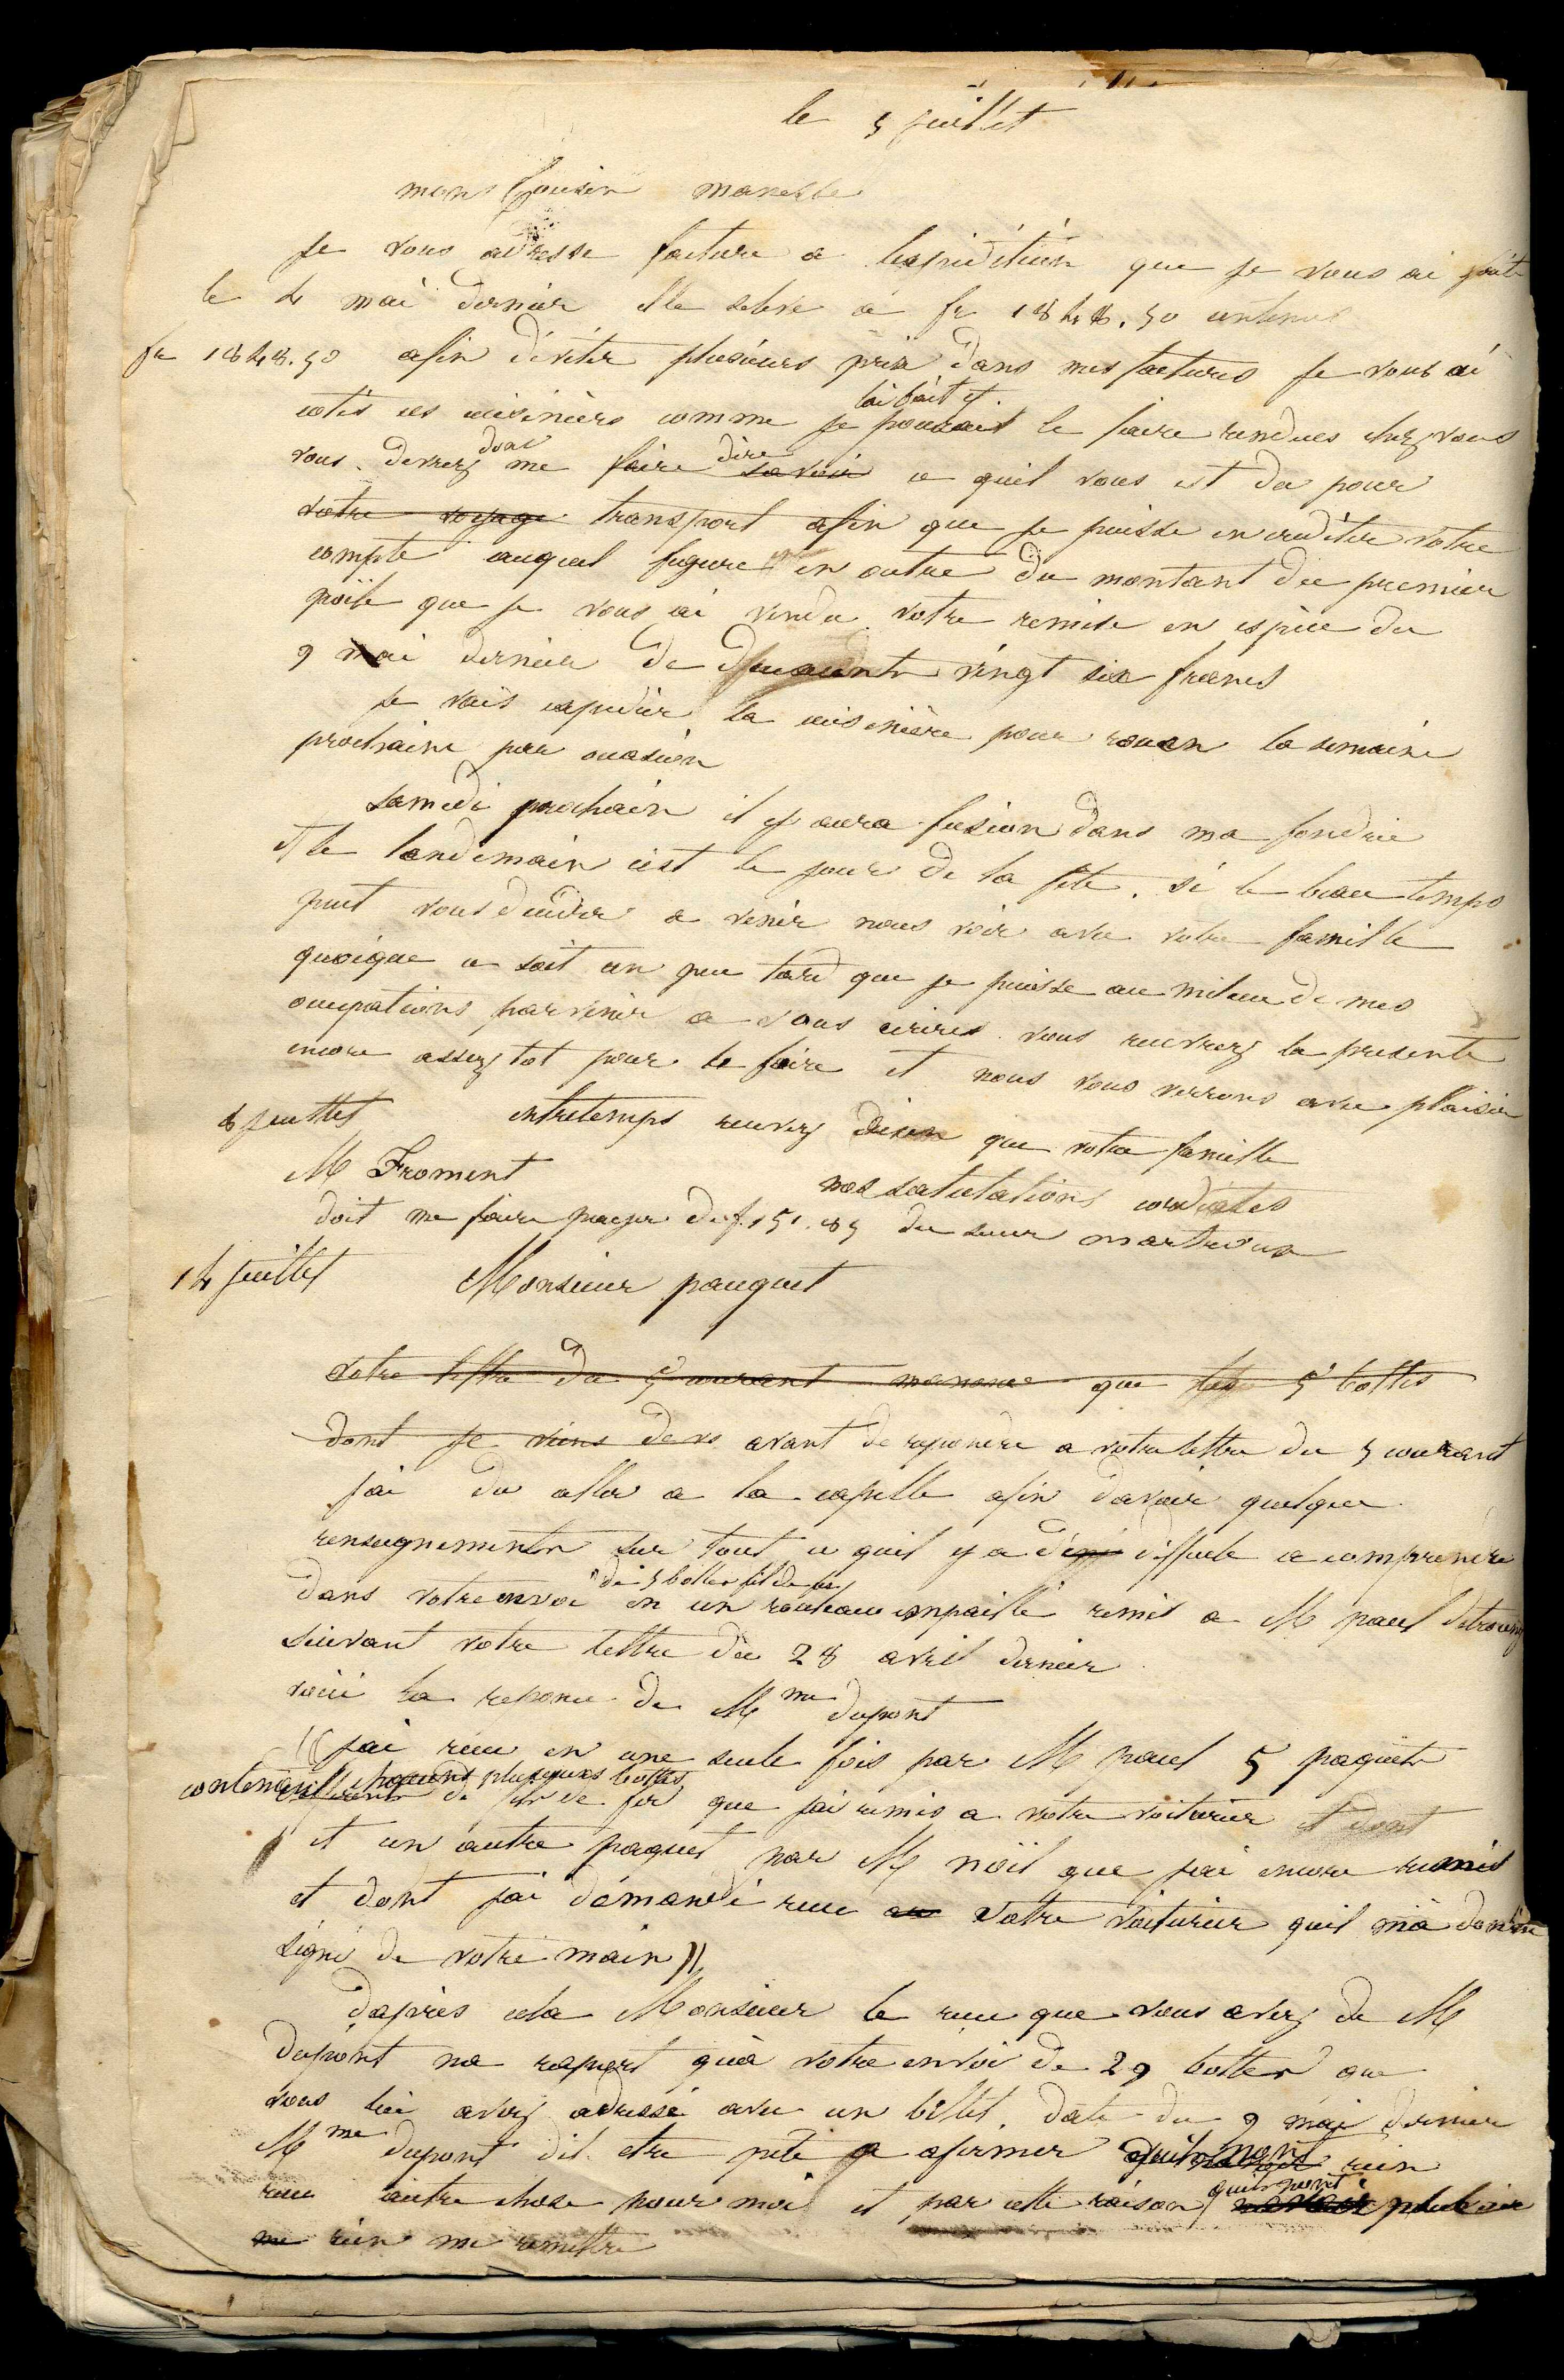 le 5 juillet
mons Cousin manesse
Je vous adresse facture a lexpédition que je vous ai faite
le 4 mai dernier elle seleve a fr 1848.50
fr 1848.50 afin déviter plusieurs prix dans mes factures je vous ai
lai fait et
cotés ces cuisinières comme je pouvait le faire rendues chez vous
donc dire
vous devrez me faire savoir ce quil vous est du pour
votre voyage transport afin que je puisse en créditer votre
compte auquel figure en outre du montant du premier
poële que je vous ai vendu votre remise en espèce du
9 mai dernier de vingt six francs
je vais expedier la cuisinière pour rouen la semaine
prochaine par occasion
samedi prochain il y aura fusion dans ma fondrie
et le landemain cest le jour de la fête. si le beau temps
peut vous décider a venir nous voir avec votre famille
quoique ce soit un peu tard que je puisse au milieu de mes
occupations parvenir a vous ecrire vous recevrez la presente
encore assez tot pour le faire et nous vous verrons avec plaisir
entretemps recevez ainsi que votre famille
nos salutations cordiales
8 juillet
M Froment
doit me faire payer de f. 151.85 du sieur martin
14 juillet Monsieur pauquet
votre lettre du 5 courant manonce que les 5 bottes
dont je viens de vo avant de repondre a votre lettre du 5 courant
jai du aller a la capelle afin davoir quelque
renseignements sur tout ce quil y a de difficile a comprendre
de 5 bottes fil de fer
dans votre envoi en un rouleau empaillé remis a M paul
suivant votre lettre du 28 avril dernier
voici la reponce de Mme dupont
(( jai recu en une seule fois par M paul 5 paquets
contenant chacuns plusieurs bottes
de fils de fer que jai remis a votre voiturier et dont
et un autre paquet par M noël que jai encore remis
et dont jai démandé recu au votre voiturier quil mà donné
signé de votre main ))
dapres cela Monsieur le recu que vous avez de M
dupont na raport quà votre envoi de 29 bottes que
vous lui avez adressé avec un billet daté du 9 mai dernier
Mme dupont dit etre prete a afirmer quils nont rien
recu autre chose pour moi et par cette raison quils nont
me rien me remettre